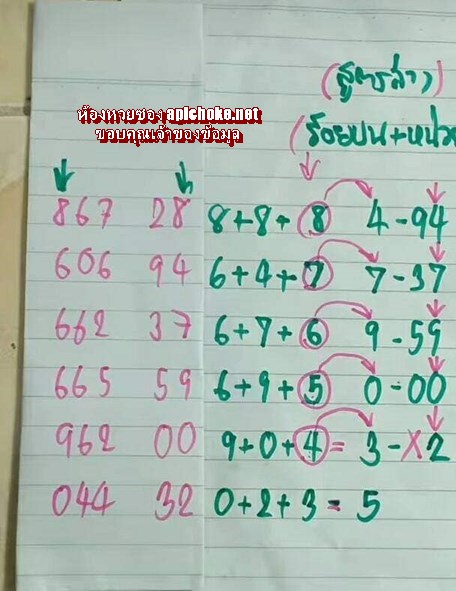 (สูตรล่าง)
ห้องหวยซอง apichoke.net
ขอบคุณเจ้าของข้อมูล
(ร้อยบน+หน่วย
867 28 8+8+8 4-94
606 94 6+4+7 7-37
662 37 6+7+6 9-59
665 59 6+9+5 0-00
962 00 9+0+4=3-X2
044 32 0+2+3=5